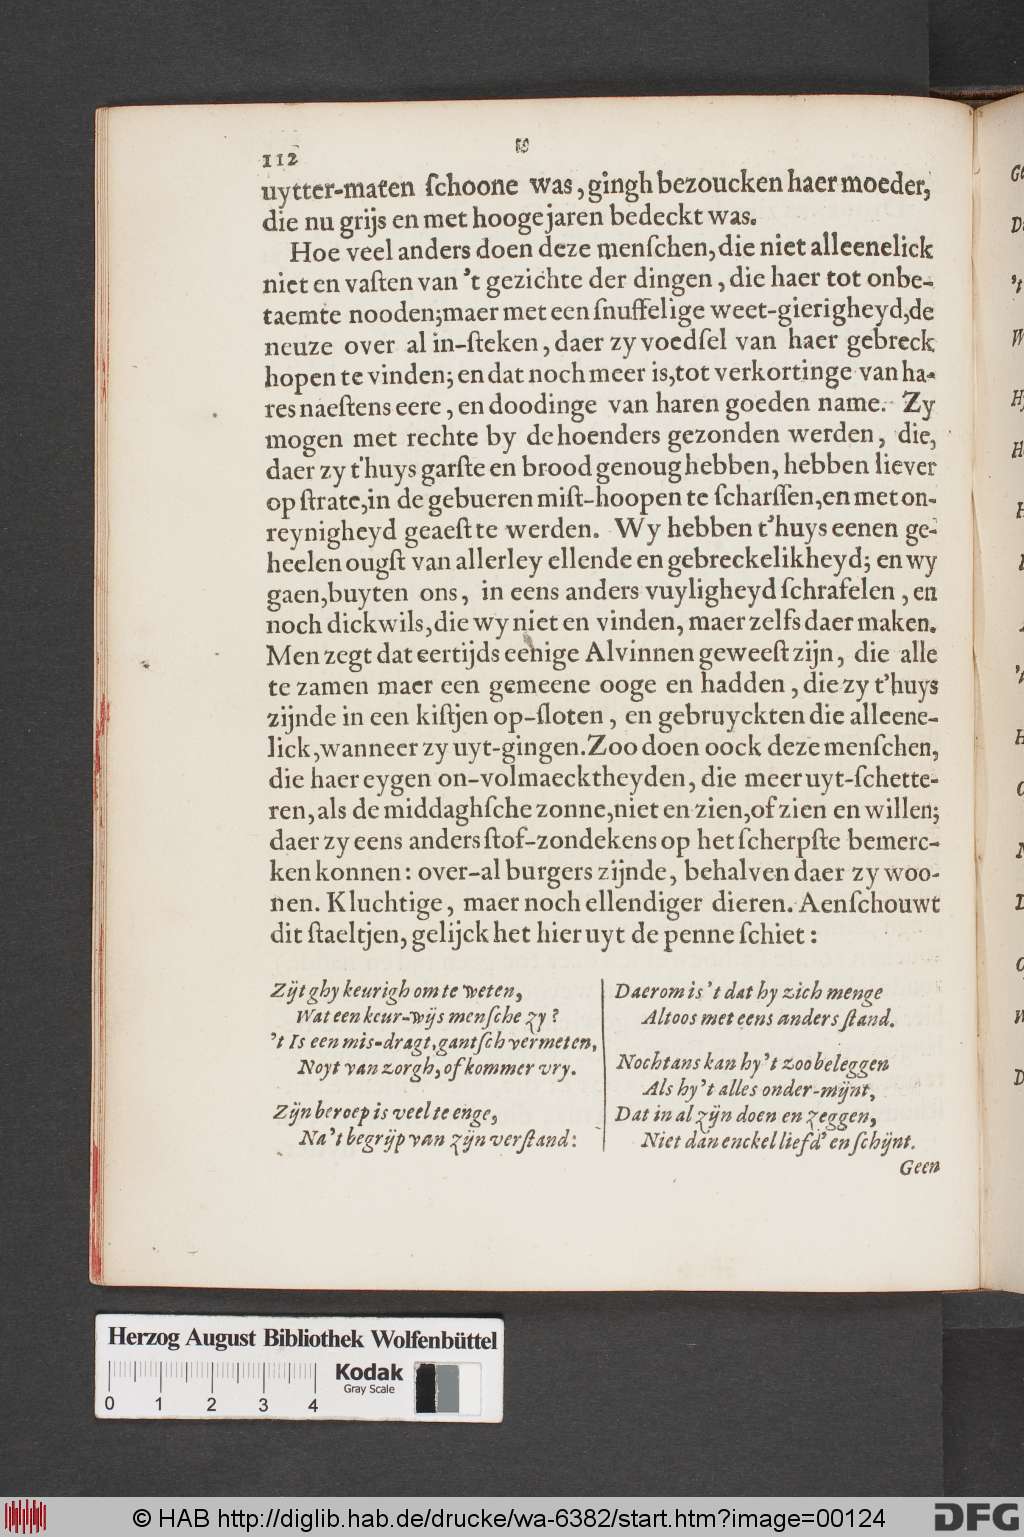 112
uytter-maten ſchoone was, gingh bezoucken haer moeder,
die nu grijs en met hooge jaren bedeckt was.
Hoe veel anders doen deze menſchen, die niet alleenelick
niet en vaſten van 't gezichte der dingen, die haer tot onbe-
taemte nooden; maer met een ſnuffelige weet-gierigheyd, de
neuze over al in-ſteken, daer zy voedſel van haer gebreck
hopen te vinden; en dat noch meer is, tot verkortinge van ha-
res naeſtens eere, en doodinge van haren goeden name. Zy
mogen met rechte by de hoenders gezonden werden, die,
daer zy t'huys garſte en brood genoug hebben, hebben liever
op ſtrate, in de gebueren miſt-hoopen te ſcharſſen, en met on-
reynigheyd geaeſt te werden. Wy hebben t'huys eenen ge-
heelen ougſt van allerley ellende en gebreckelikheyd; en wy
gaen, buyten ons, in eens anders vuyligheyd ſchrafelen, en
noch dickwils, die wy niet en vinden, maer zelfs daer maken.
Men zegt dat eertijds eenige Alvinnen geweeſt zijn, die alle
te zamen maer een gemeene ooge en hadden, die zy t'huys
zijnde in een kiſtjen op-ſloten, en gebruyckten die alleene-
lick, wanneer zy uyt-gingen. Zoo doen oock deze menſchen,
die haer eygen on-volmaecktheyden, die meer uyt-ſchette-
ren, als de middaghſche zonne, niet en zien, of zien en willen;
daer zy eens anders ſtof-zondekens op het ſcherpſte bemerc-
ken konnen: over-al burgers zijnde, behalven daer zy woo-
nen. Kluchtige, maer noch ellendiger dieren. Aenſchouwt
dit ſtaeltjen, gelijck het hier uyt de penne ſchiet:
Zijt ghy keurigh om te weten,
Wat een keur-wijs menſche zy?
't Is een mis-dragt, gantſch vermeten,
Noyt van zorgh, of kommer vry.
Zijn beroep is veel te enge,
Na 't begrijp van zijn verſtand:
Daerom is 't dat hy zich menge
Altoos met eens anders ſtand.
Nochtans kan hy 't zoo beleggen
Als hy 't alles onder-mijnt,
Dat in al zijn doen en zeggen,
Niet dan enckel liefd' en ſchijnt.
Geen
Herzog August Bibliothek Wolfenbüttel
Kodak
Gray Scale
0 1 2 3 4
© HAB http://diglib.hab.de/drucke/wa-6382/start.htm?image=00124
DFG